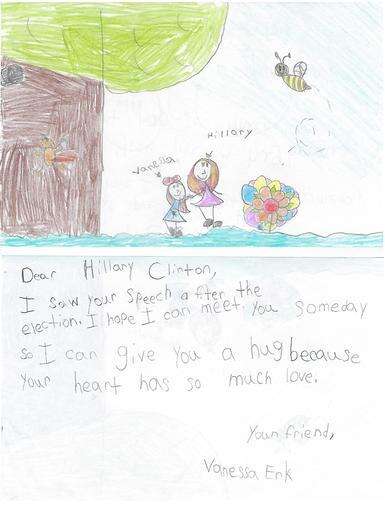 Hillary
Vanessa
Dear Hillary Clinton,
I saw your speech after the
election. I hope I can meet you someday
so I can give you a hug because
your heart has so much love.
Your friend,
Vanessa Enk